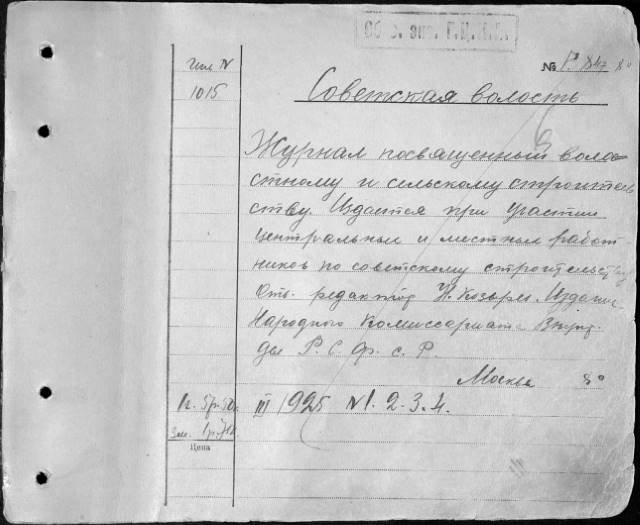 Об. экз. Г.Ц.К.П.
№
Инв N
1015
Советская волость
Журнал посвященный воло
стному и сельскому строитель
ству. Издается при участии
центральных и местных работ
ников по советскому строительству
Отв. редактор И. Козырев. Издание
Народного Комиссариата Внутр.
дел Р. С. Ф. С. Р.
Москва 8°
III 1925 N1. 2. 3. 4.
Цена